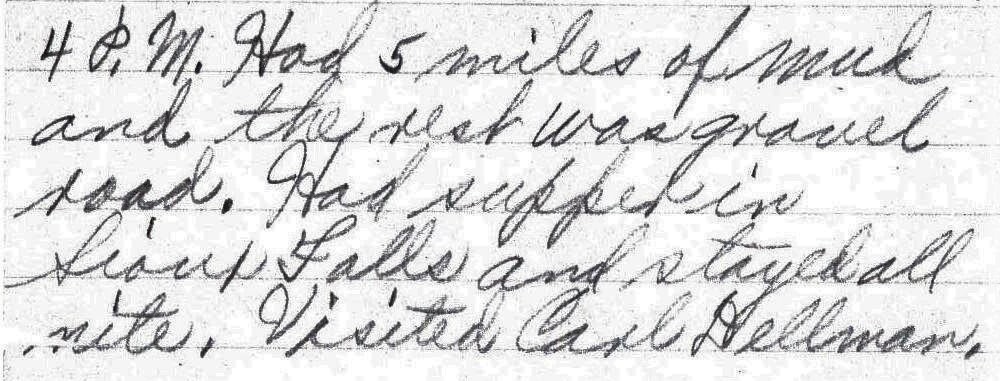 4 P.M. Had 5 miles of mud
and the rest was gravel
road. Had supper in
Sioux Falls and stayed all
nite. Visited Carl Hellman.